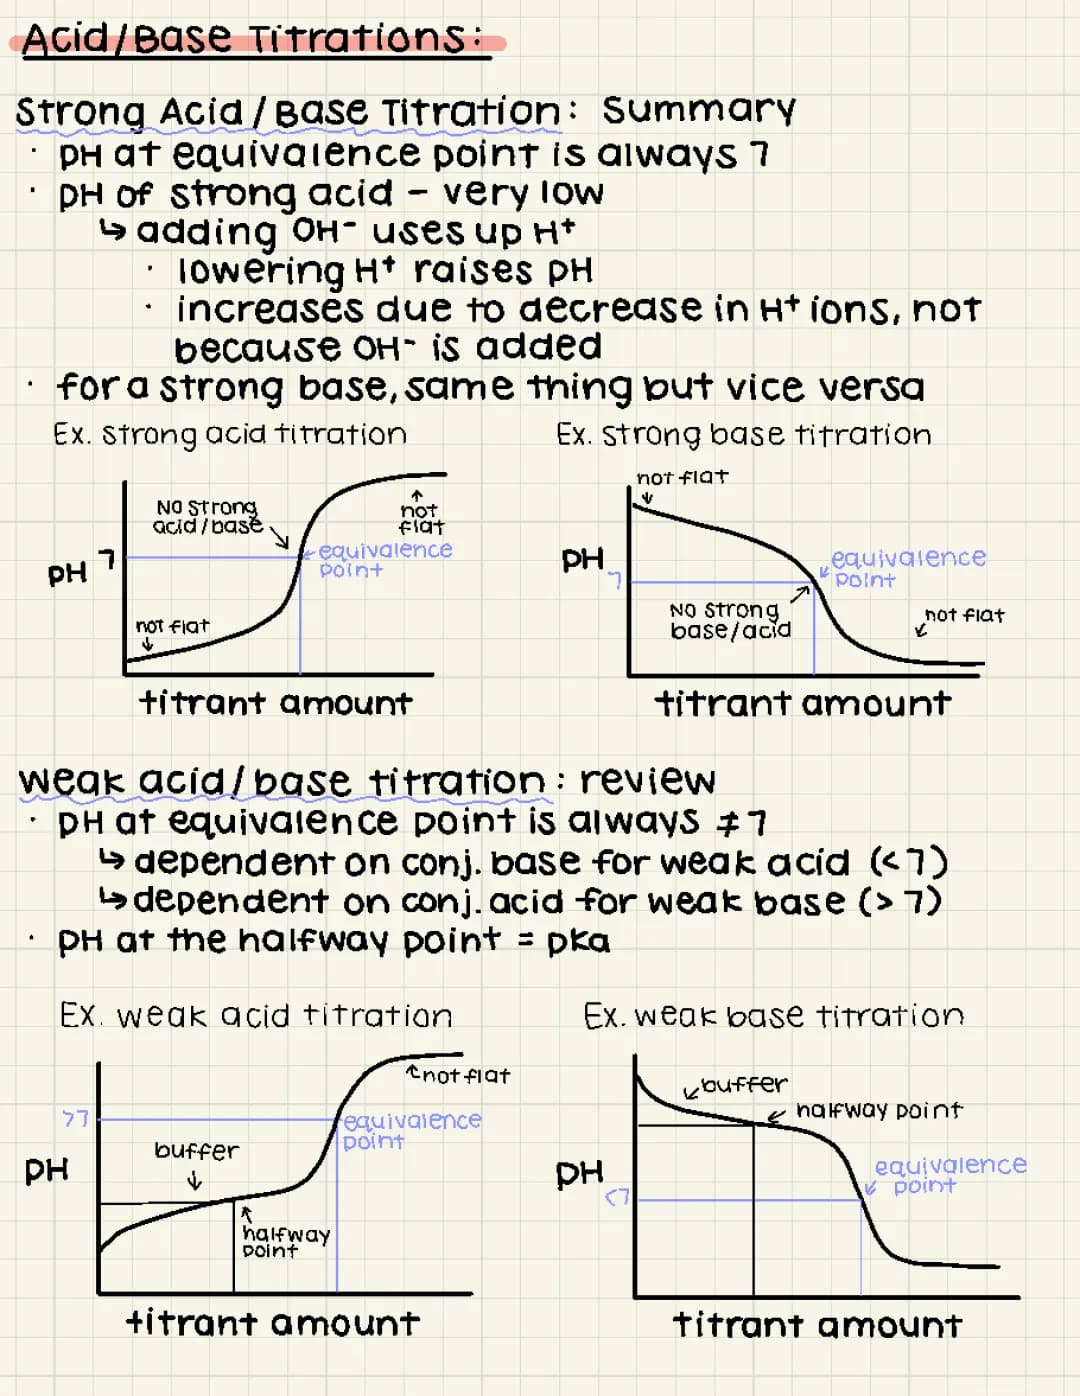 Acid/Base Titrations:
Strong Acid/Base Titration: Summary
· pH at equivalence point is always 7
· pH of strong acid - very low
↳ adding OH⁻ uses up H⁺
· lowering H⁺ raises pH
· increases due to decrease in H⁺ ions, not
because OH⁻ is added
· for a strong base, same thing but vice versa
Ex. strong acid titration
No strong
acid/base
not
flat
equivalence
point
7
pH
not flat
titrant amount
Ex. strong base titration
not flat
pH
7
equivalence
point
No strong
base/acid
not flat
titrant amount
weak acid/base titration: review
· pH at equivalence point is always ≠7
↳ dependent on conj. base for weak acid (<7)
↳ dependent on conj. acid for weak base (>7)
· pH at the halfway point = pka
Ex. weak acid titration
not flat
>7
equivalence
point
buffer
pH
halfway
point
titrant amount
Ex. weak base titration
buffer
halfway point
pH
equivalence
point
<7
titrant amount